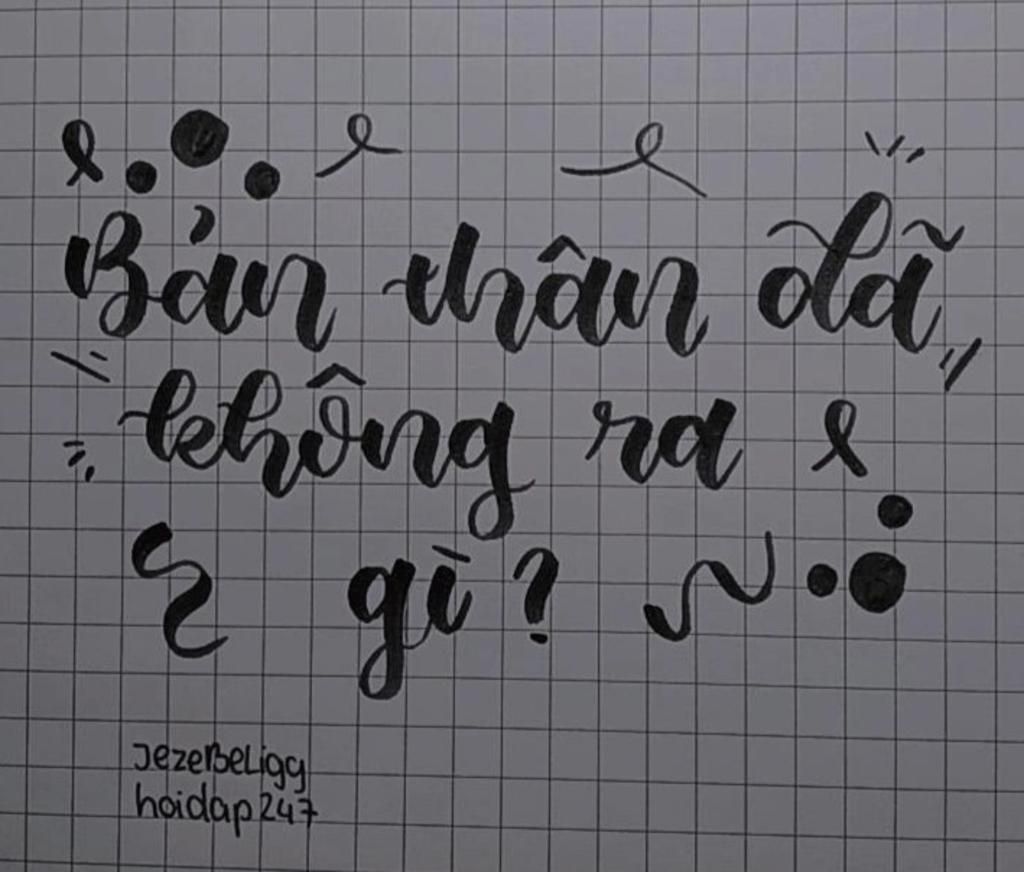 Bản thân đã
không ra
gì?
Jezebeligg
hoidap247